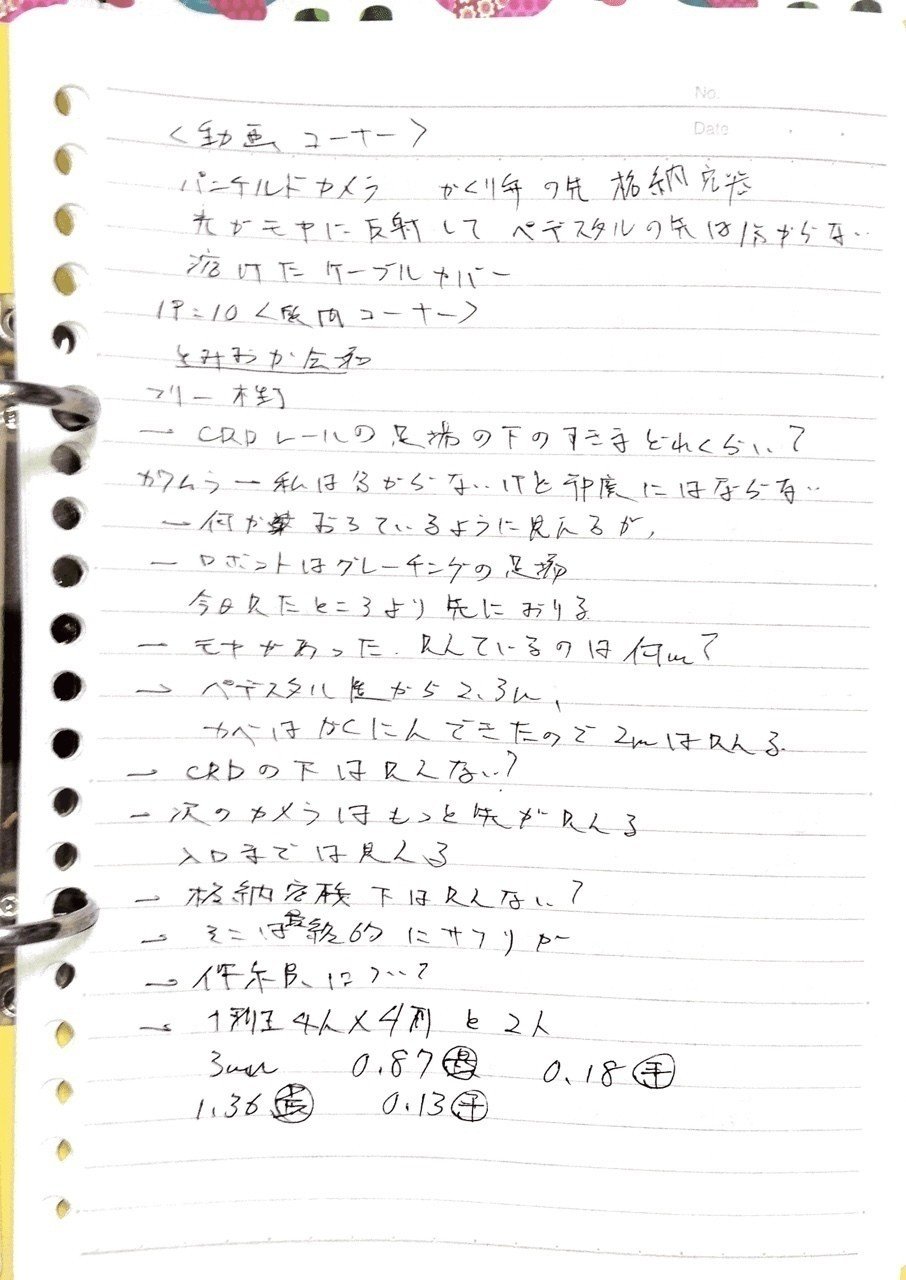 No.
Date
<動画コーナー>
パンチルドカメラ かくり弁の先 格納容器
光がモヤに反射して ペデスタルの先は分からない
溶けたケーブルカバー
19:10 <質問コーナー>
とみおか会和
フリー 木野
→ CRDレールの足場の下のすきまどれくらい?
カワムラ → 私は分からないけど 極度にはならない
→ 何か おちているように見えるが、
→ ロボットはグレーチングの足場
今日見たところより先におりる
→ モヤがあった.見えているのは何m?
→ ペデスタル から2.3m、
カベはかくにんできたので2mは見える
→ CRDの下は見えない?
→ 次のカメラはもっと先が見える
入口までは見える
→ 格納容器 下は見えない?
→ そこは最終的にサプリカー
→ 作業員について?
→ 1班4人×4班と2人
3mm 0.87 最 0.18 平
1.36 高 0.13 平